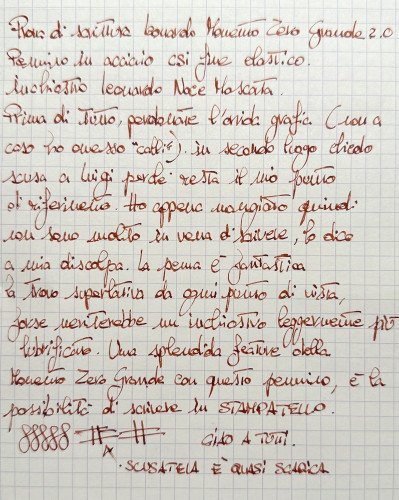 Prova di scrittura Leonardo Momento Zero Grande 2.0
Pennino in acciaio csi fine elastico.
Inchiostro Leonardo Noce Moscata.
Prima di tutto, perdonate l'orrida grafia (non a
caso ho messo "calli"). in secondo luogo chiedo
scusa a Luigi perché resta il mio punto
di riferimento. Ho appena mangiato quindi
non sono molto in vena di scrivere, lo dico
a mia discolpa. La penna è fantastica
la trovo superlativa da ogni punto di vista,
forse meriterebbe un inchiostro leggermente più
lubrificato. Una splendida feature della
Momento Zero Grande con questo pennino, è la
possibilità di scrivere in STAMPATELLO.
CIAO A TUTTI.
· SCUSATELA È QUASI SCARICA